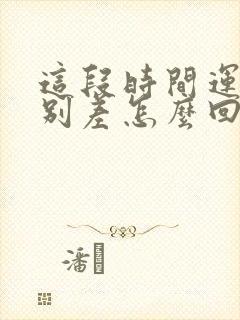 這段時間運
別差怎麼回
潘